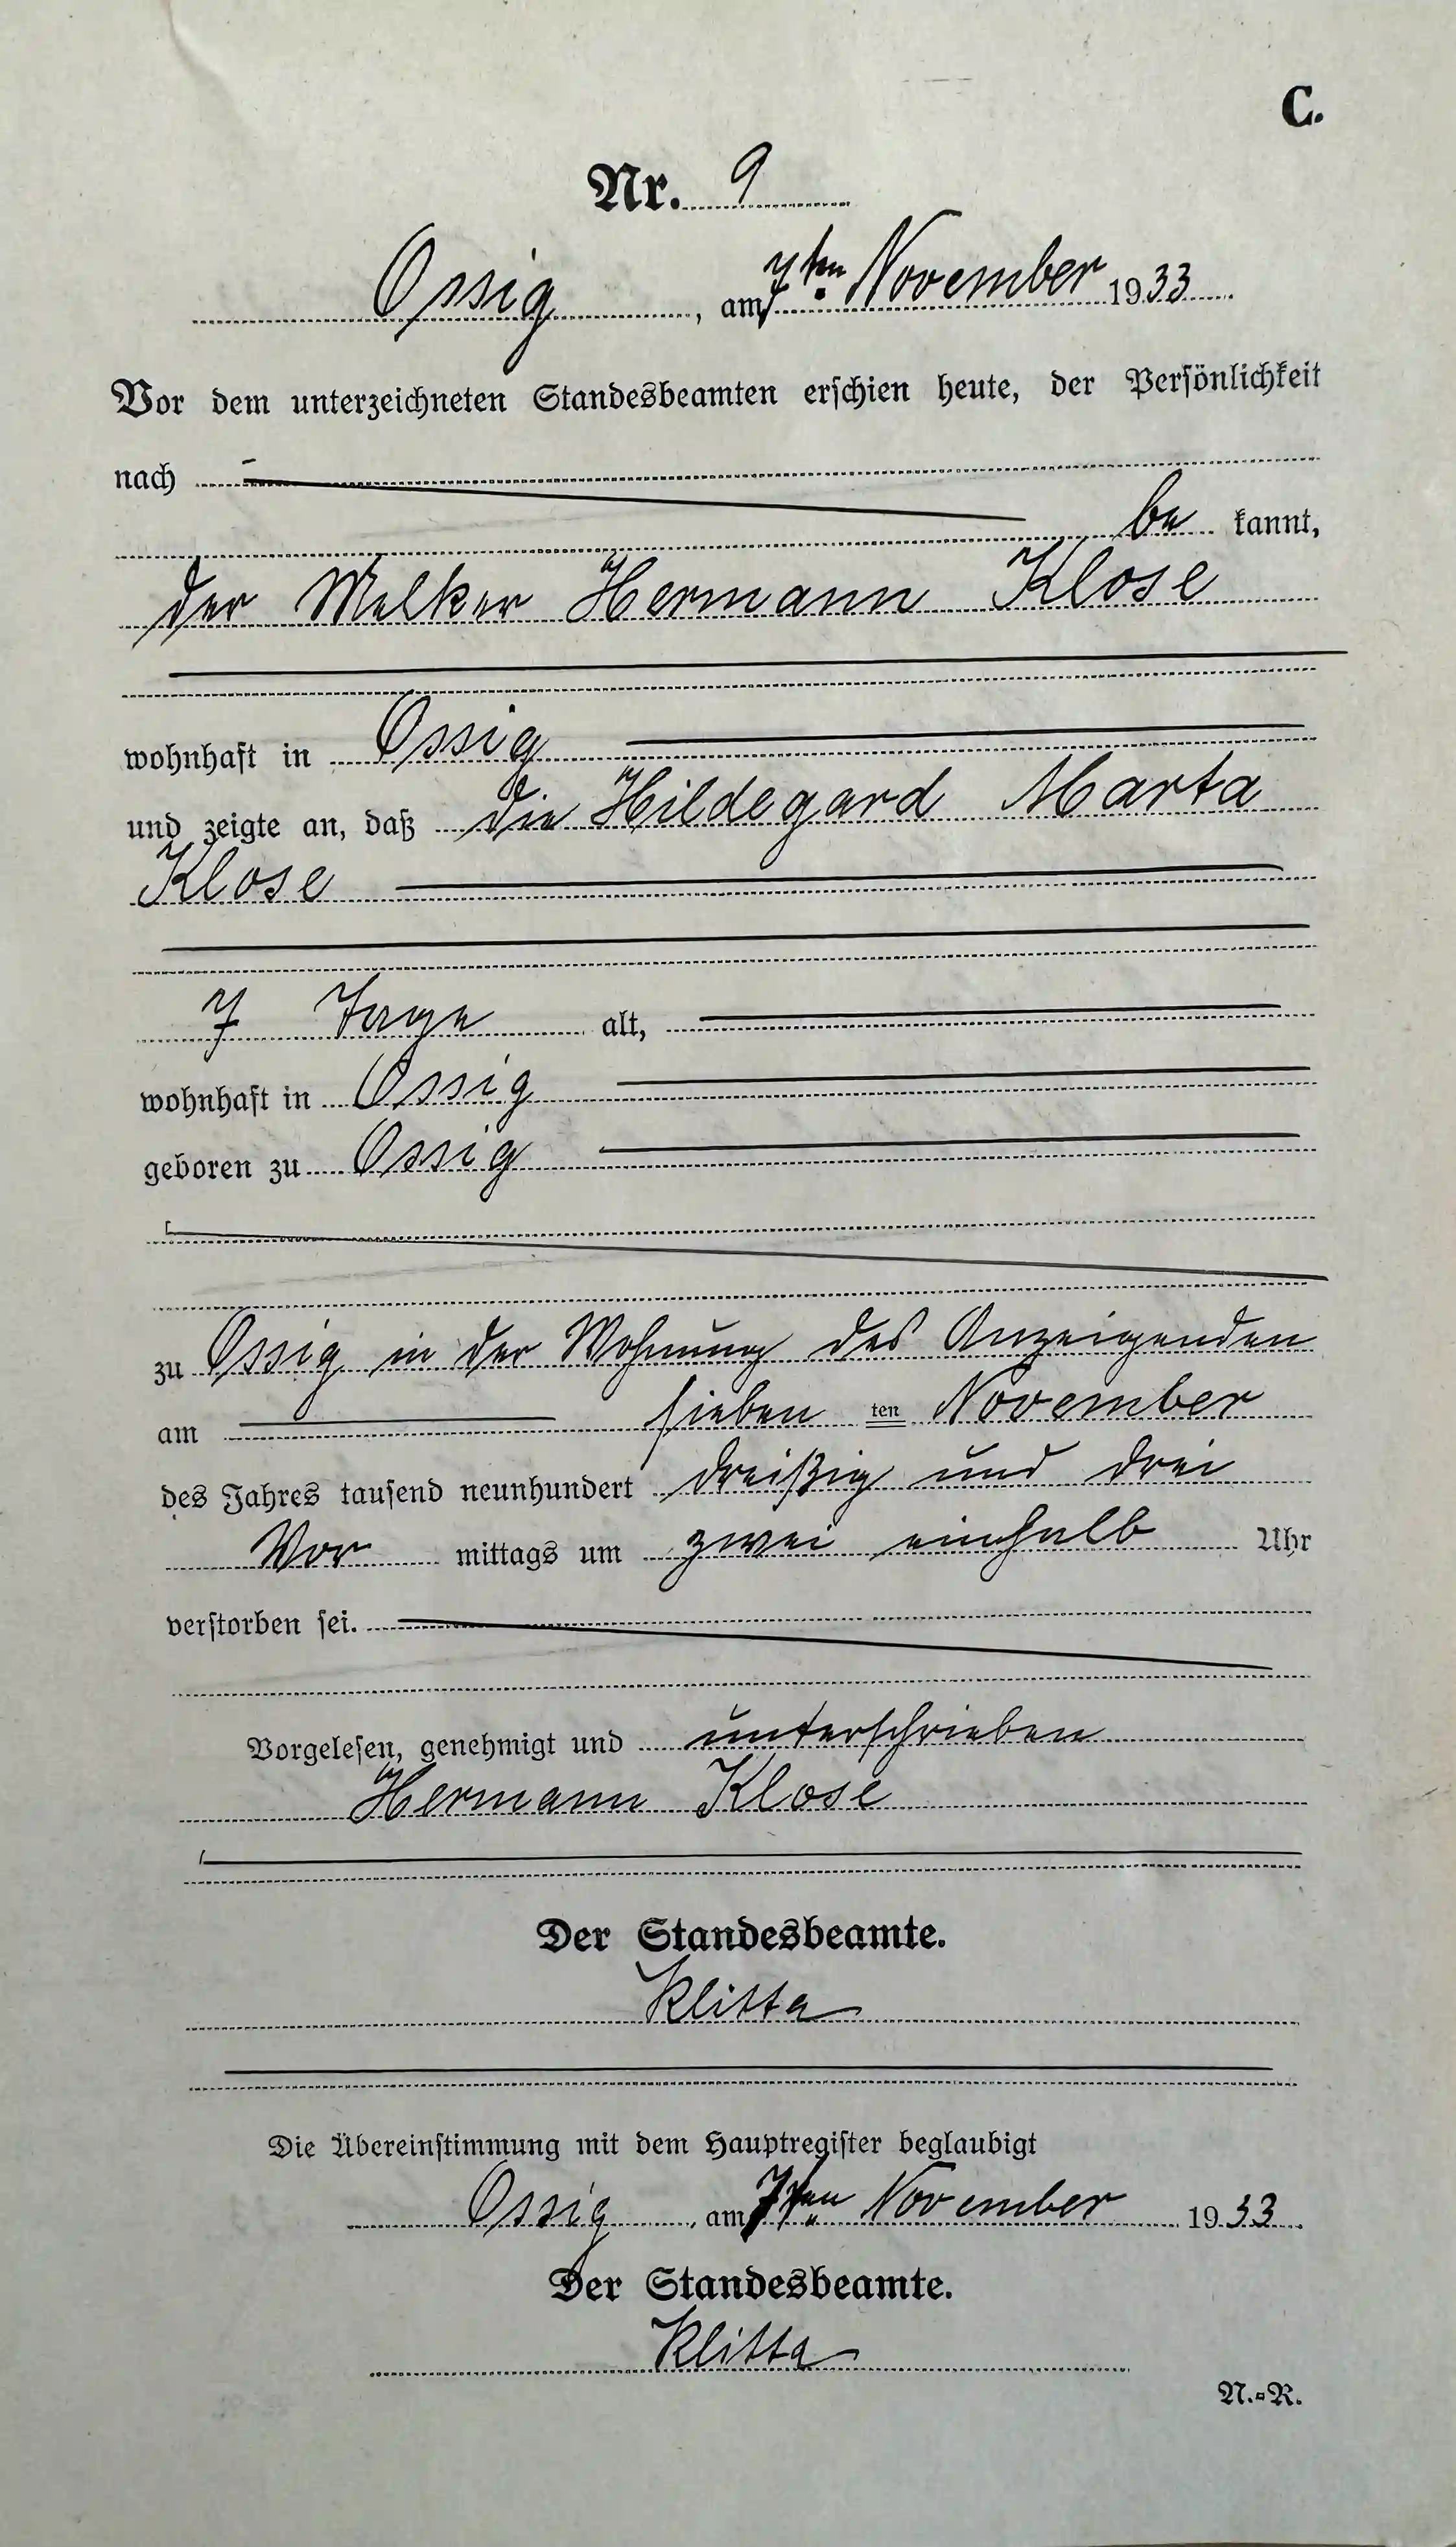 C.
Nr. 9
Ossig, am 7ten November 1933.
Vor dem unterzeichneten Standesbeamten erschien heute, der Persönlichkeit
nach
be kannt,
der Melker Hermann Klose
wohnhaft in Ossig
und zeigte an, daß die Hildegard Marta
Klose
7 Tage alt,
wohnhaft in Ossig
geboren zu Ossig
zu Ossig in der Wohnung des Anzeigenden
am sieben ten November
des Jahres tausend neunhundert dreißig und drei
Vor mittags um zwei einhalb Uhr
verstorben sei.
Vorgelesen, genehmigt und unterschrieben
Hermann Klose
Der Standesbeamte.
Klitta
Die Übereinstimmung mit dem Hauptregister beglaubigt
Ossig, am 7ten November 1933.
Der Standesbeamte.
Klitta
N.=R.